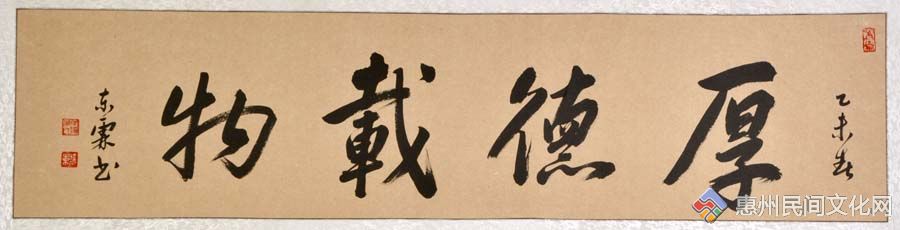 乙未春
厚德載物
东霖书
惠州民间文化网